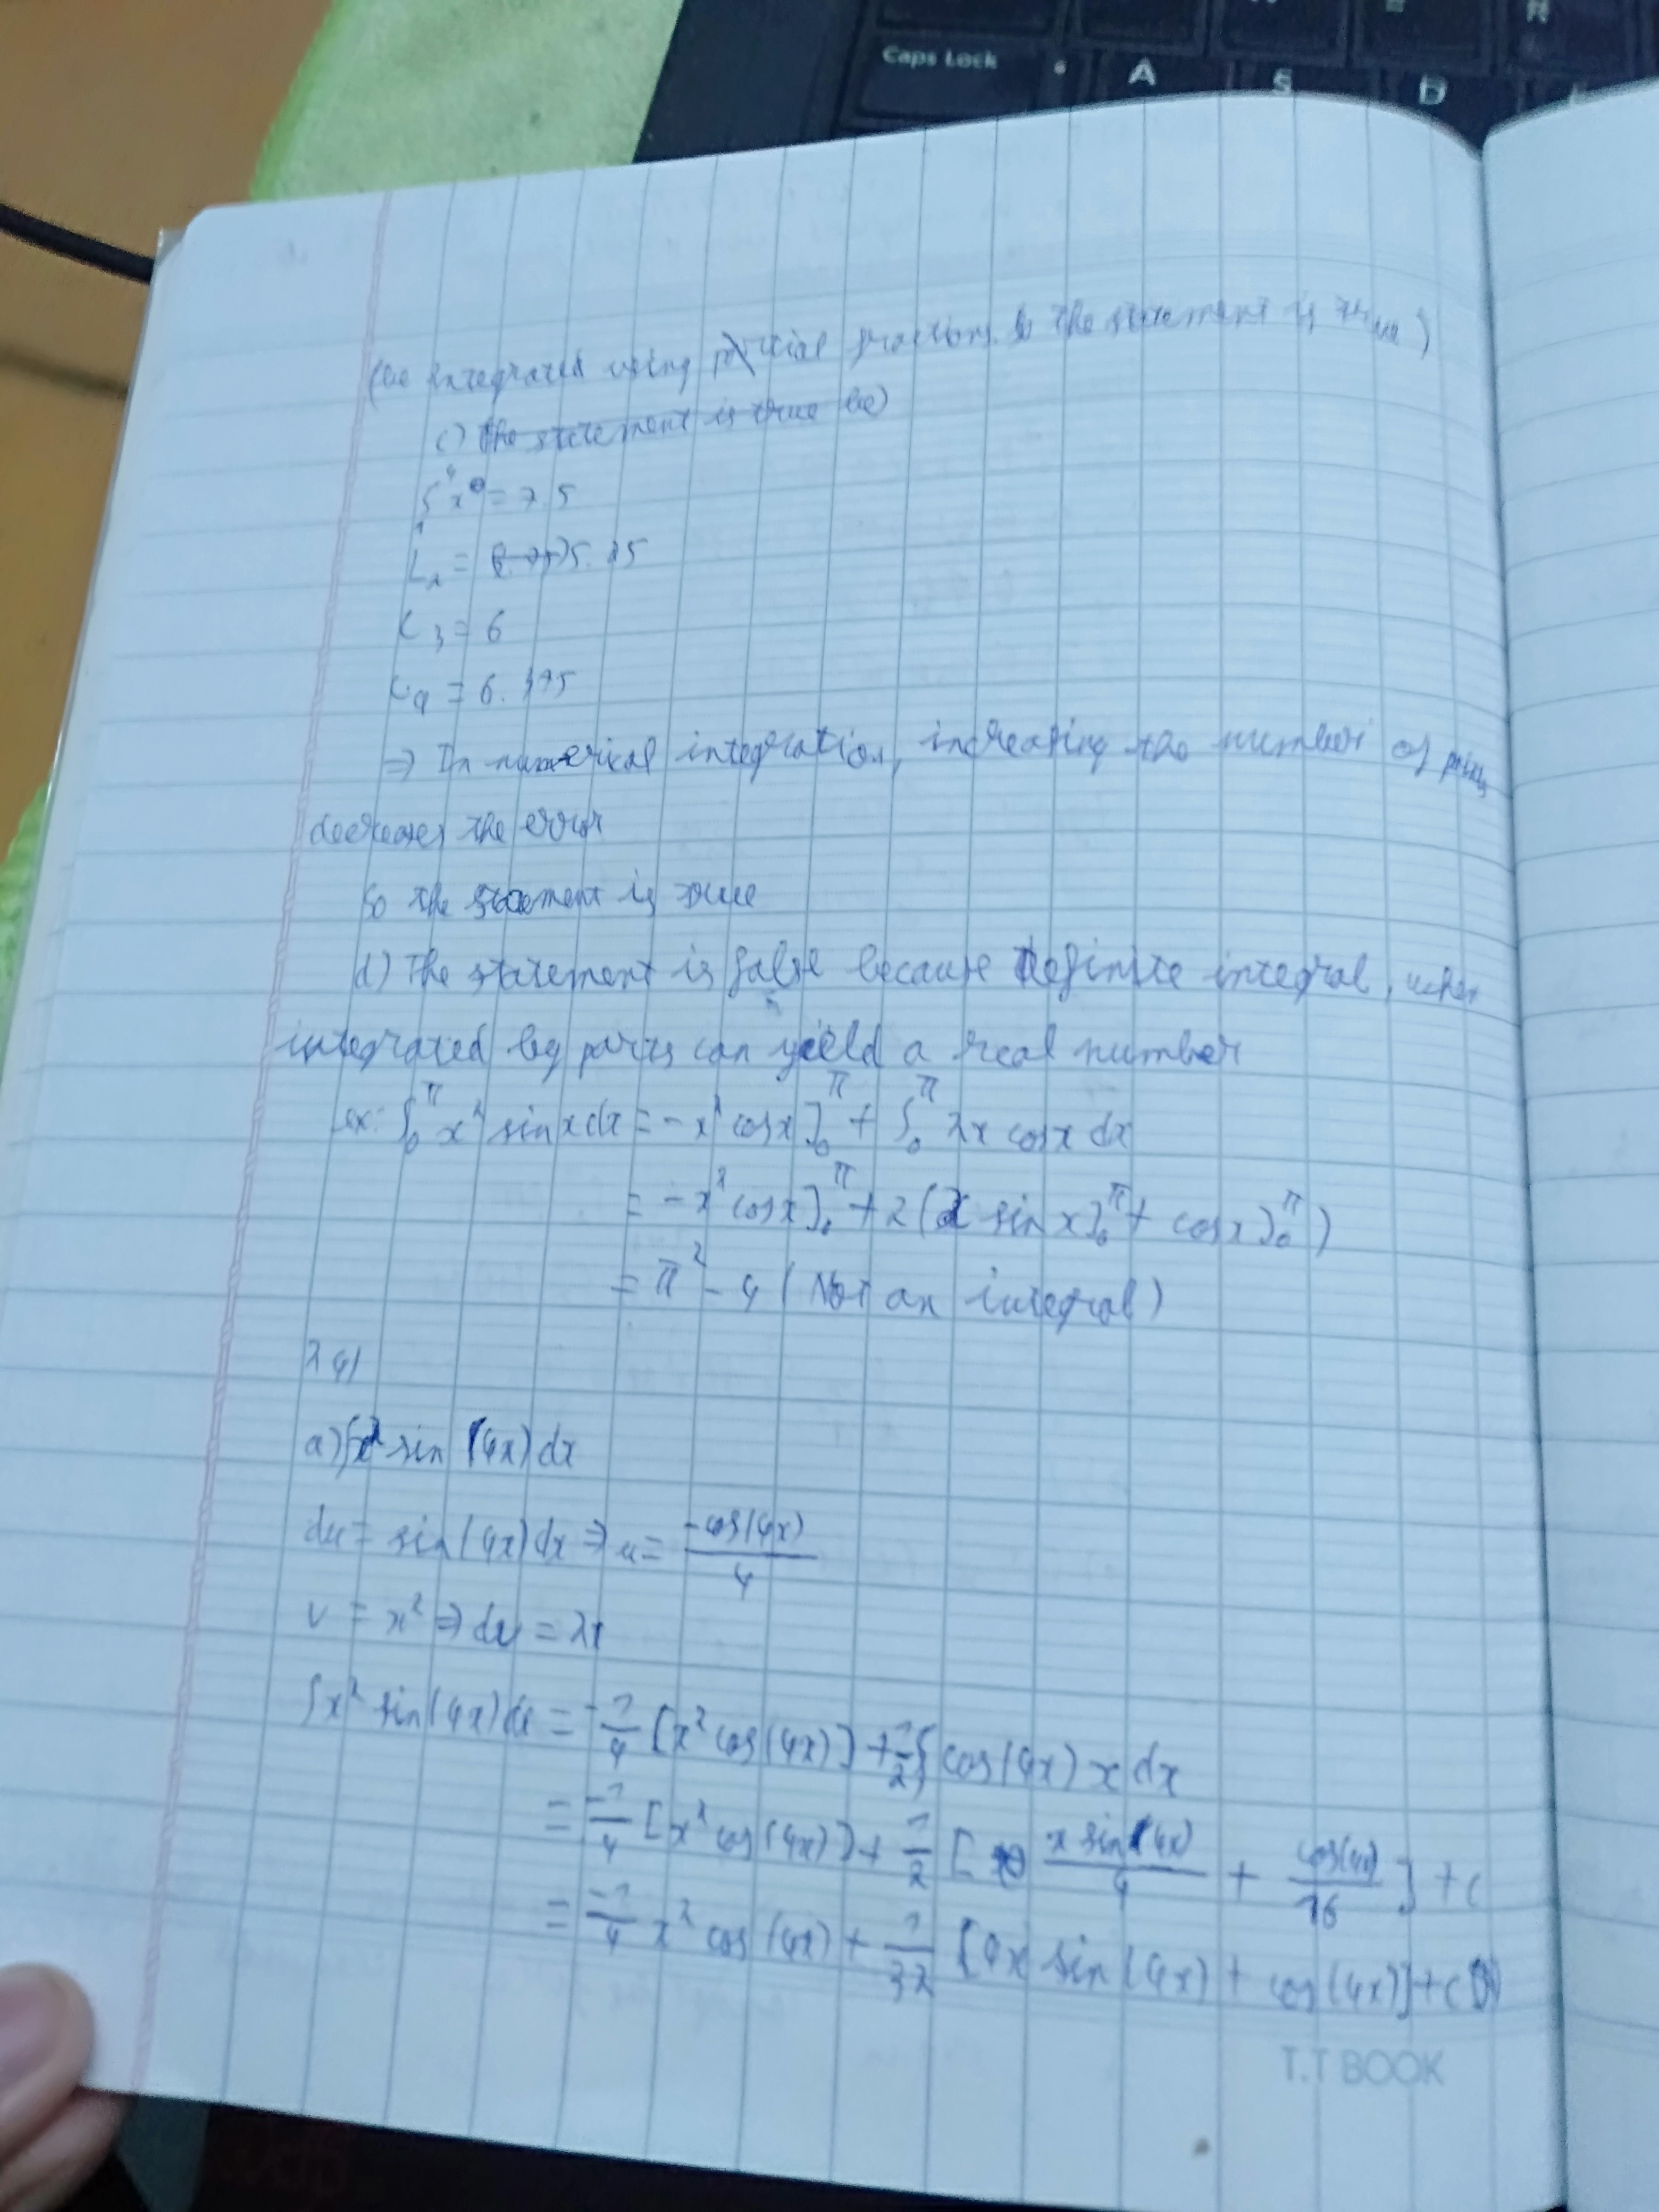 Caps Lock
A
S
D
(be integrated using partial fractions. So the statement is true)
c) The statement is true be)
∫₁⁴ x = 7.5
L₂ = 5.25
L₃ = 6
L₄ = 6.375
⇒ In numerical integration, increasing the number of points
decreases the error
So the statement is true
d) The statement is false because definite integral, when
integrated by parts can yield a real number
ex: ∫₀^π x² sin x dx = -x² cos x]₀^π + ∫₀^π 2x cos x dx
= -x² cos x]₀^π + 2(x sin x]₀^π + cos x]₀^π)
= π² - 4 (Not an integral)
24)
a) ∫x² sin(4x) dx
du = sin(4x) dx ⇒ u = -cos(4x)/4
v = x² ⇒ dv = 2x
∫x² sin(4x) dx = -1/4 [x² cos(4x)] + 1/2 ∫cos(4x) x dx
= -1/4 [x² cos(4x)] + 1/2 [x sin(4x)/4 + cos(4x)/16] + C
= -1/4 x² cos(4x) + 1/32 [4x sin(4x) + cos(4x)] + C
T.T BOOK